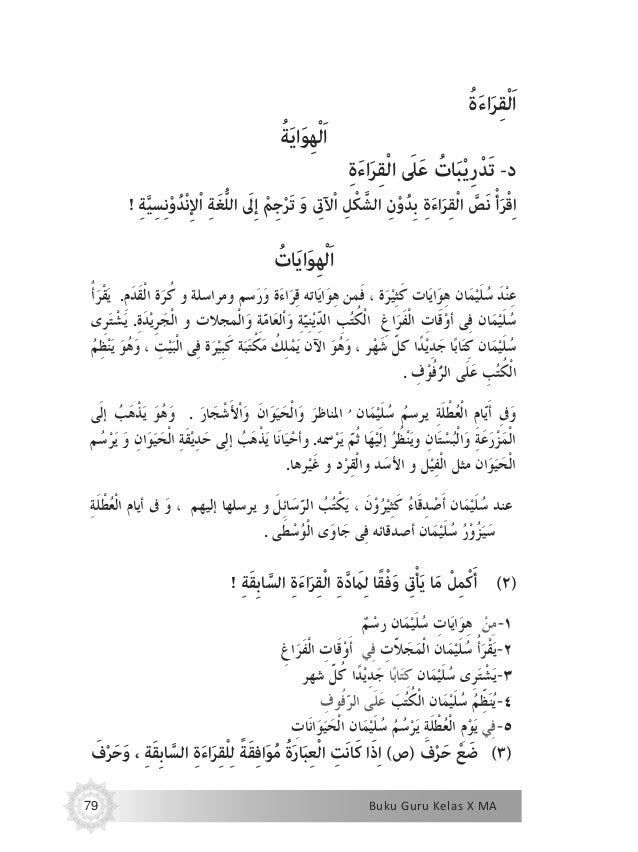 اَلْقِرَاءَةُ
اَلْهِوَايَةُ
د- تَدْرِيْبَاتُ عَلَى الْقِرَاءَةِ
اِقْرَأْ نَصَّ الْقِرَاءَةِ بِدُوْنِ الشَّكْلِ اْلآتِى وَ تَرْجِمْ إِلَى اللُّغَةِ اْلإِنْدُوْنِسِيَّةِ !
اَلْهِوَايَاتُ
عِنْدَ سُلَيْمَان هِوَايَات كَثِيْرَة ، فَمن هِوَايَاته قِرَاءَة وَرَسم ومراسلة و كُرَة الْقَدَم. يَقْرَأُ
سُلَيْمَان فِى أَوْقَات الْفَرَاغِ الْكُتُب الدِّيْنِيّة وَالْعَامّة وَالْمجلات و الْجَرِيْدَة. يَشْتَرِى
سُلَيْمَان كِتَابًا جَدِيْدًا كلّ شَهْر ، وَهُوَ الآن يَمْلِكُ مَكْتَبَة كَبِيْرَة فِى الْبَيْتِ ، وَهُوَ يَنْظِمُ
الْكُتُبِ عَلَى الرُّفُوْفِ .
وَفِى أَيّام الْعُطْلَةِ يرسمُ سُلَيْمَان ُ المناظرَ وَالْحَيَوَانَ وَاْلأَشْجَارَ . وَهُوَ يَذْهَبُ إلَى
الْمَزْرَعَةِ وَالْبُسْتَانِ ويَنْظُرُ إِلَيْهَا ثُمّ يَرْسمه. وأحْيَانَا يَذْهَبُ إلى حَدِيْقَةِ الْحَيَوَانِ وَ يَرْسُم
الْحَيَوَان مثل الْفِيْل و الأسَد والْقِرْد و غَيْرها.
عند سُلَيْمَان أَصْدِقَاءُ كَثِيْرُوْنَ ، يَكْتُبُ الرّسَائِلَ و يرسلها إليهم ، وَ فى أيام الْعُطْلَةِ
سَيَزُوْرُ سُلَيْمَان أصدقائه فِى جَاوَى الْوُسْطَى .
(٢) أَكْمِلْ مَا يَأْتِى وَفْقًا لِمَادَّةِ الْقِرَاءَةِ السَّابِقَةِ !
١-مِنْ هِوَايَاتِ سُلَيْمَان رسْمٌ
٢-يَقْرَأُ سُلَيْمَان الْمَجَلاّتِ فِي أَوْقَاتِ الْفَرَاغِ
٣-يَشْتَرِى سُلَيْمَان كتَابًا جَدِيْدًا كُلّ شهر
٤-يُنَظِّمُ سُلَيْمَان الْكُتُبَ عَلَى الرّفُوفِ
٥-فِي يَوْمِ الْعُطْلَةِ يَرْسُمُ سُلَيْمَان الْحَيَوَانَاتِ
(٣) ضَعْ حَرْفَ (ص) إِذَا كَانَتِ الْعِبَارَةُ مُوَافِقَةً لِلْقِرَاءَةِ السَّابِقَةِ ، وَحَرْفَ
79 Buku Guru Kelas X MA